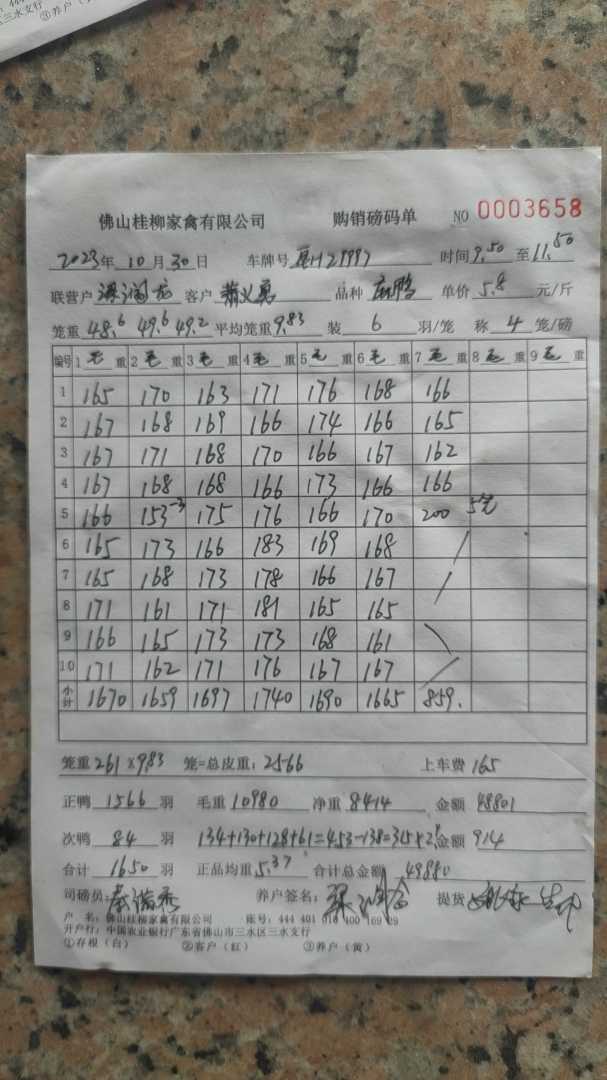 ③养户（
三水支行
佛山桂柳家禽有限公司 购销磅码单 NO 0003658
2023年 10 月 30 日 车牌号 时间 9.50 至 11.50
联营户 客户 品种 麻鸭 单价 5.8 元/斤
笼重 48.6 49.6 49.2 平均笼重 9.83 装 6 羽/笼 称 4 笼/磅
编号 1 毛 重 2 毛 重 3 毛 重 4 毛 重 5 毛 重 6 毛 重 7 毛 重 8 毛 重 9 毛 重
1 165 170 163 171 176 168 166
2 167 168 169 166 174 166 165
3 167 171 168 170 166 167 162
4 167 168 168 166 173 166 166
5 166 153-3 175 176 166 170 200 5笼
6 165 173 166 183 169 168
7 165 168 173 178 166 167
8 171 161 171 181 165 165
9 166 165 173 173 168 161
10 171 162 171 176 167 167
小计 1670 1659 1697 1740 1690 1665 859.
笼重 261 X 9.83 笼=总皮重: 2566 上车费 165
正鸭 1566 羽 毛重 10980 净重 8414 金额 48801
次鸭 84 羽 134+130+128+61=453-138=315×2.9 金额 914
合计 1650 羽 正品均重 5.37 合计总金额 49880
司磅员: 养户签名: 提货
户 名: 佛山桂柳家禽有限公司 账号: 444 401 010 400 169 29
开户行: 中国农业银行广东省佛山市三水区三水支行
①存根（白） ②客户（红） ③养户（黄）